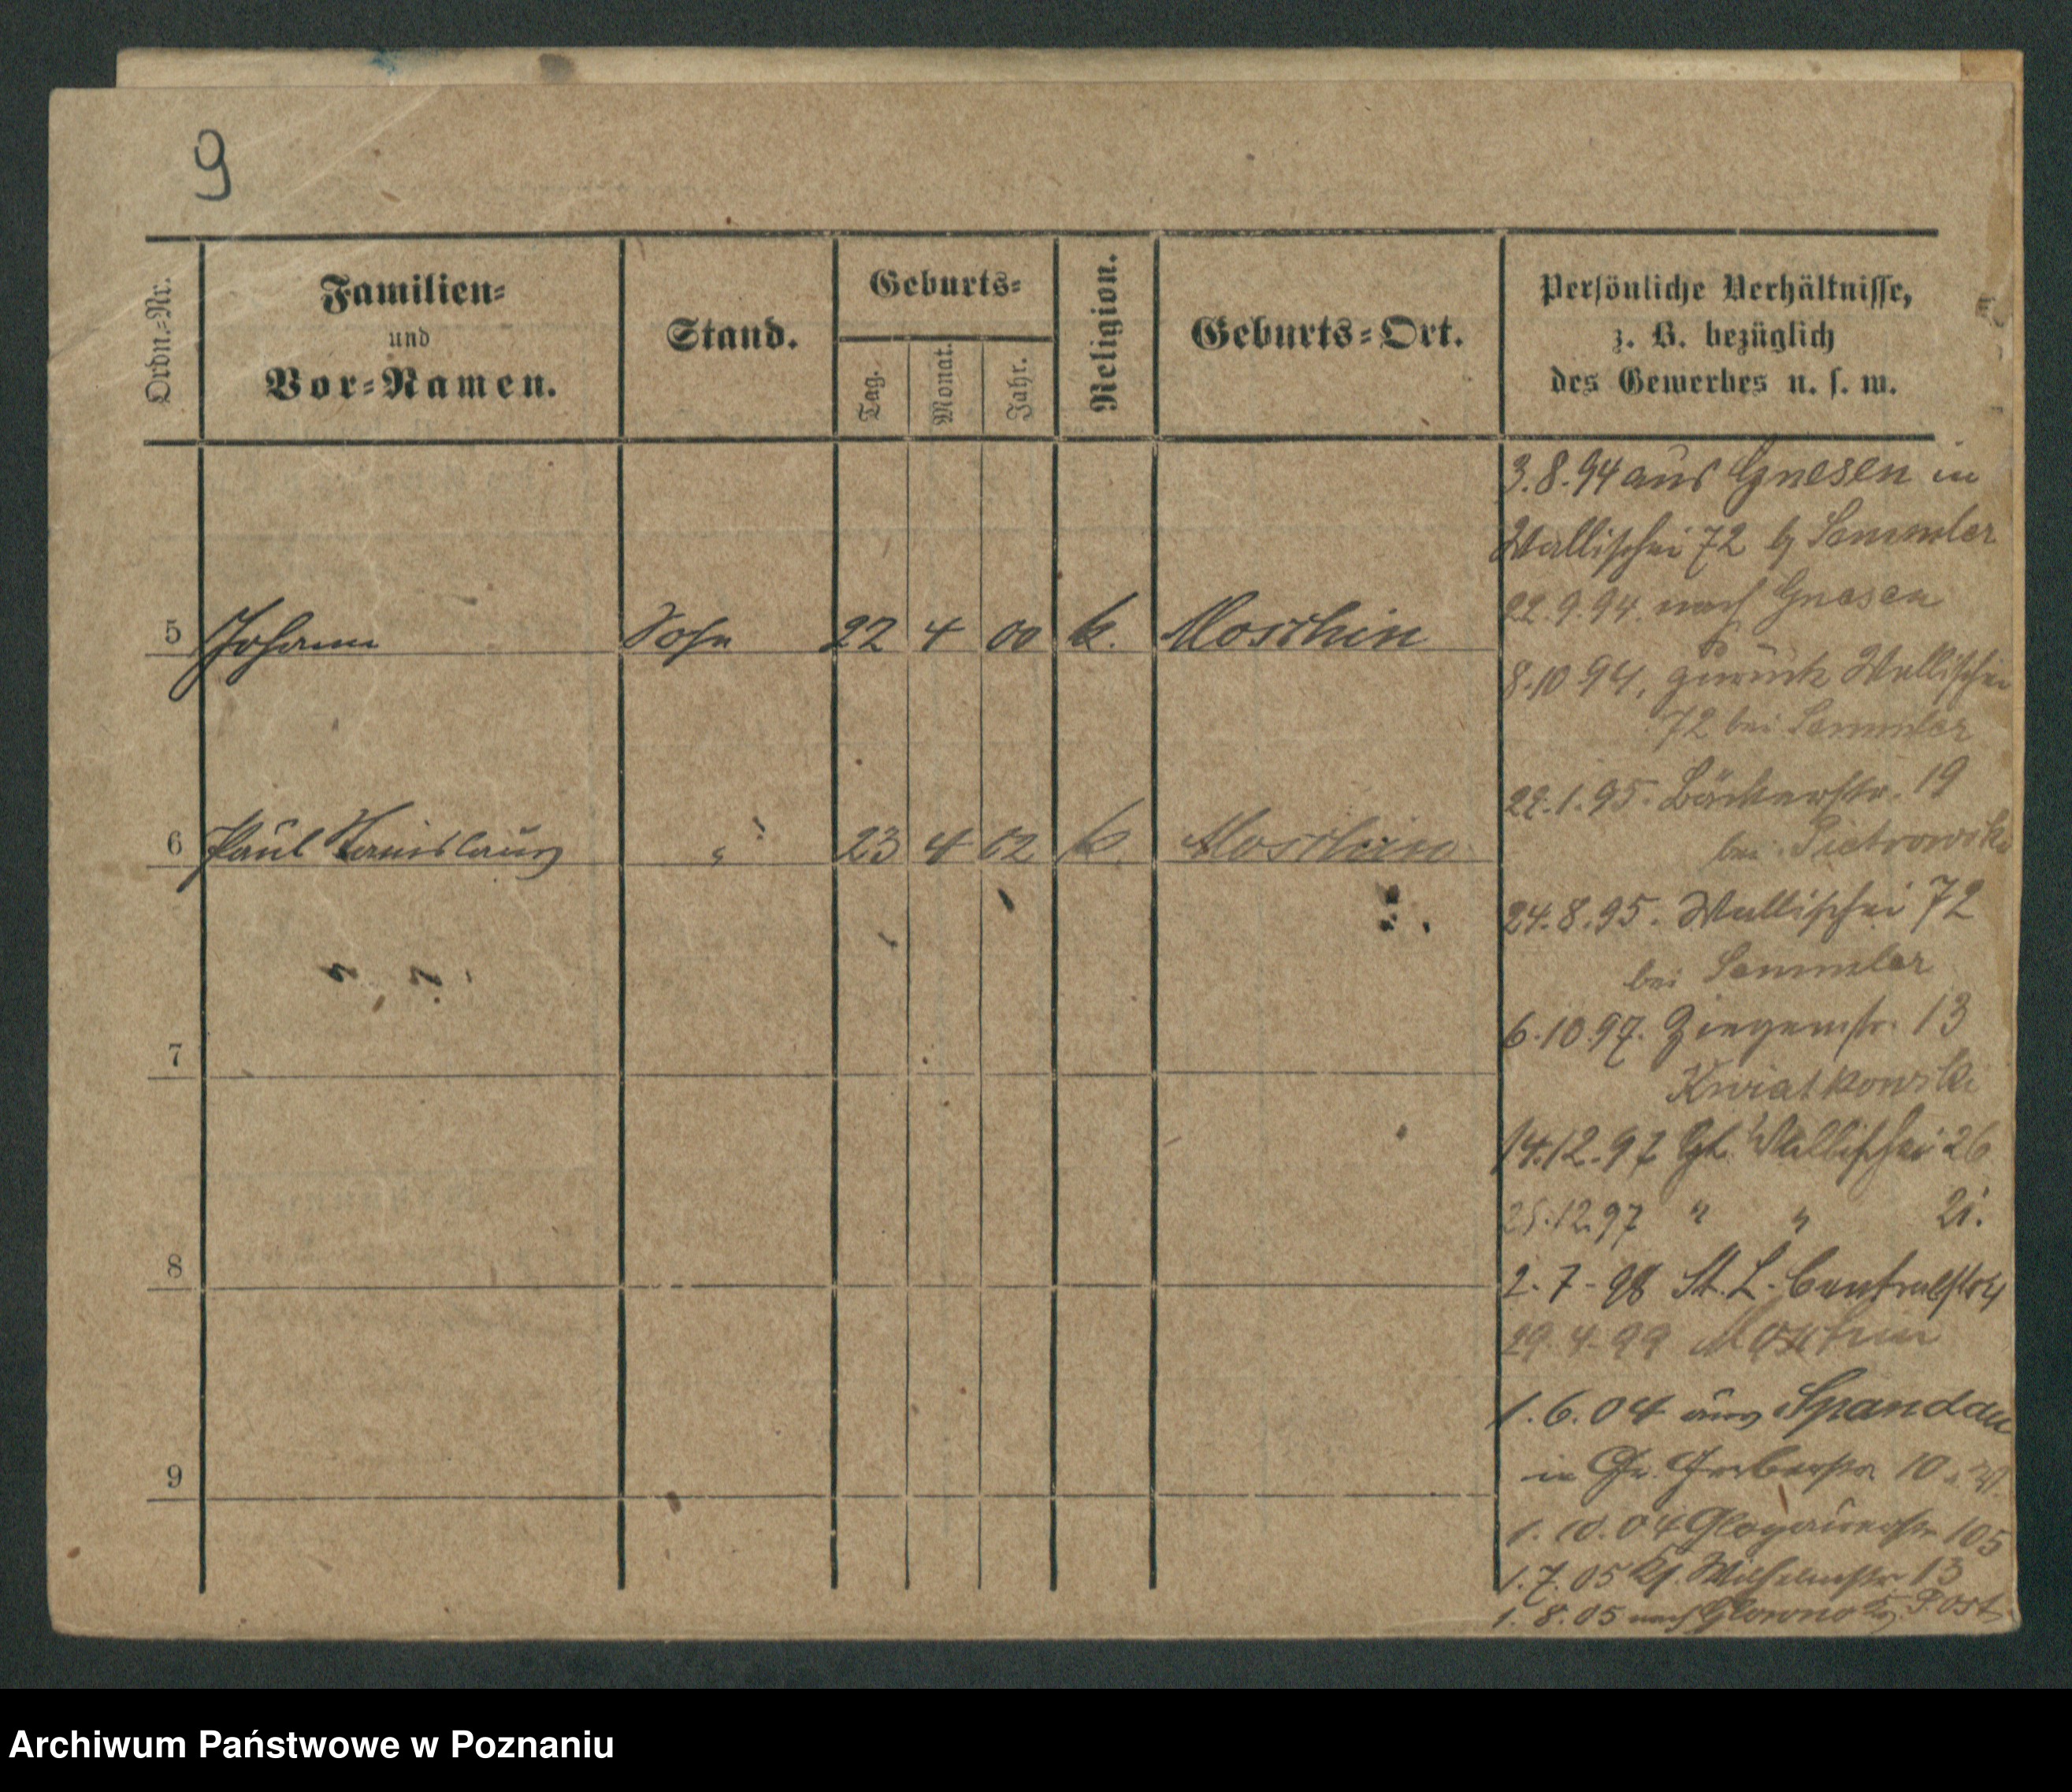 9
Ordn.=Nr.
Familien=
und
Vor=Namen.
Stand.
Geburts=
Tag.
Monat.
Jahr.
Religion.
Geburts=Ort.
Persönliche Verhältnisse,
z. B. bezüglich
des Gewerbes u. s. w.
5 Johann Sohn 22 4 00 k. Moschin
6 Paul Stanislaus " 23 4 02 k. Moschin
7
8
9
3.8.94 aus Gnesen in
Wallischei 72 b Semmler
22.9.94. nach Gnesen
8.10 94, zurück Wallischei
72 bei Semmler
22.1.95. Bäckerstr. 19
bei Pietrowski
24.8.95. Wallischei 72
bei Semmler
6.10.97. Ziegenstr. 13
Kwiatkowski
14.12.97 Wallischei 26
12.97 " "
2.7-98 St. L. Centralstr
29.4.99 Moschin
1.6.04 aus Spandau
in Gr. Gerberstr 10
1.10.04 Glogauerstr 105
1.7.05 Wilhelmstr 13
1.8.05 nach Glowno Post
Archiwum Państwowe w Poznaniu